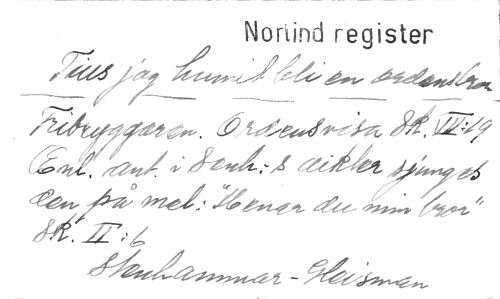 Norlind register
Tills jag hunnit bli en ordensbror
Fribyggaren. Ordensvisa Sk. III:19
Enl. ant. i Stenh:s dikter sjunges
den på mel: "Menar du min bror"
Sk. II:6
Stenhammar - Hoisman